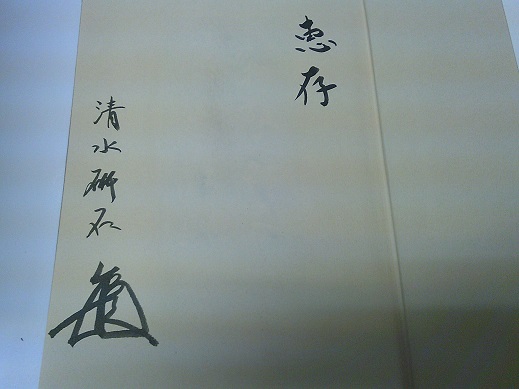 惠存
清水研石